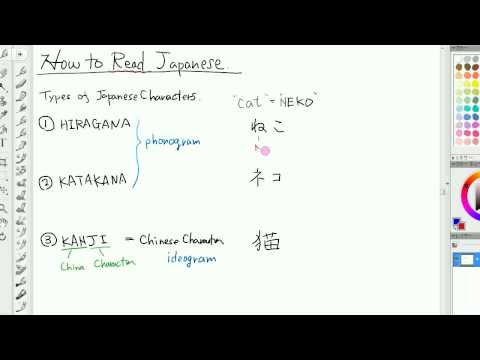 How to Read Japanese.
Types of Japanese Characters.
"cat" = NEKO"
① HIRAGANA
phonogram
ねこ
② KATAKANA
ネコ
③ KANJI = Chinese Character
猫
China Character
ideogram